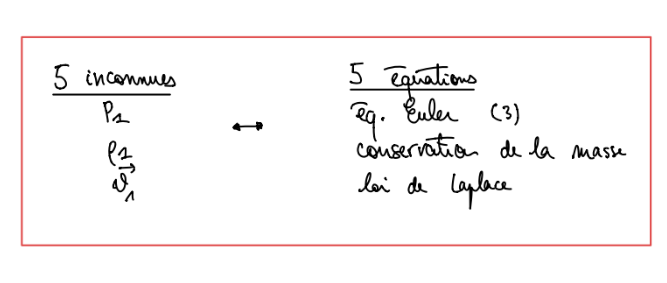 5 inconnues
P₁
ρ₁
v⃗₁
↔
5 équations
éq. Euler (3)
conservation de la masse
loi de Laplace